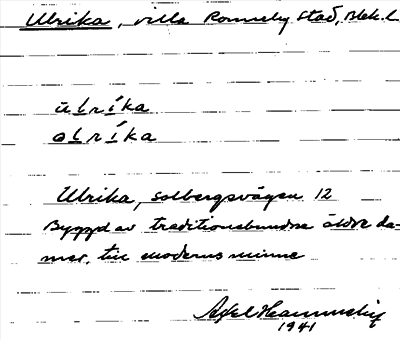 Ulrika, villa Ronneby stad, Blek. l.
ūlríka
olríka
Ulrika, Solbergsvägen 12
Byggd av traditionsbundna äldre da-
mer, till moderns minne
Axel
1941